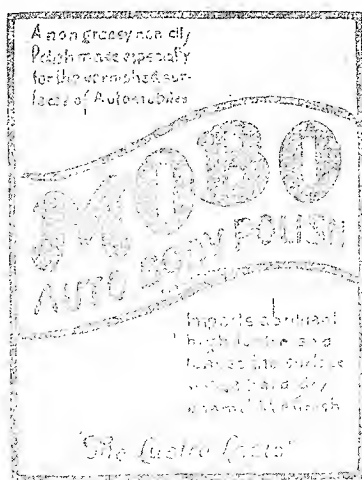 A non greasy non oily
Polish made especially
for the varnished sur-
faces of Automobiles
MOBO
AUTO BODY POLISH
Imparts a brilliant
high lustre and
leaves the surface
with a hard dry
enamel like finish
"The Lustre Lasts"